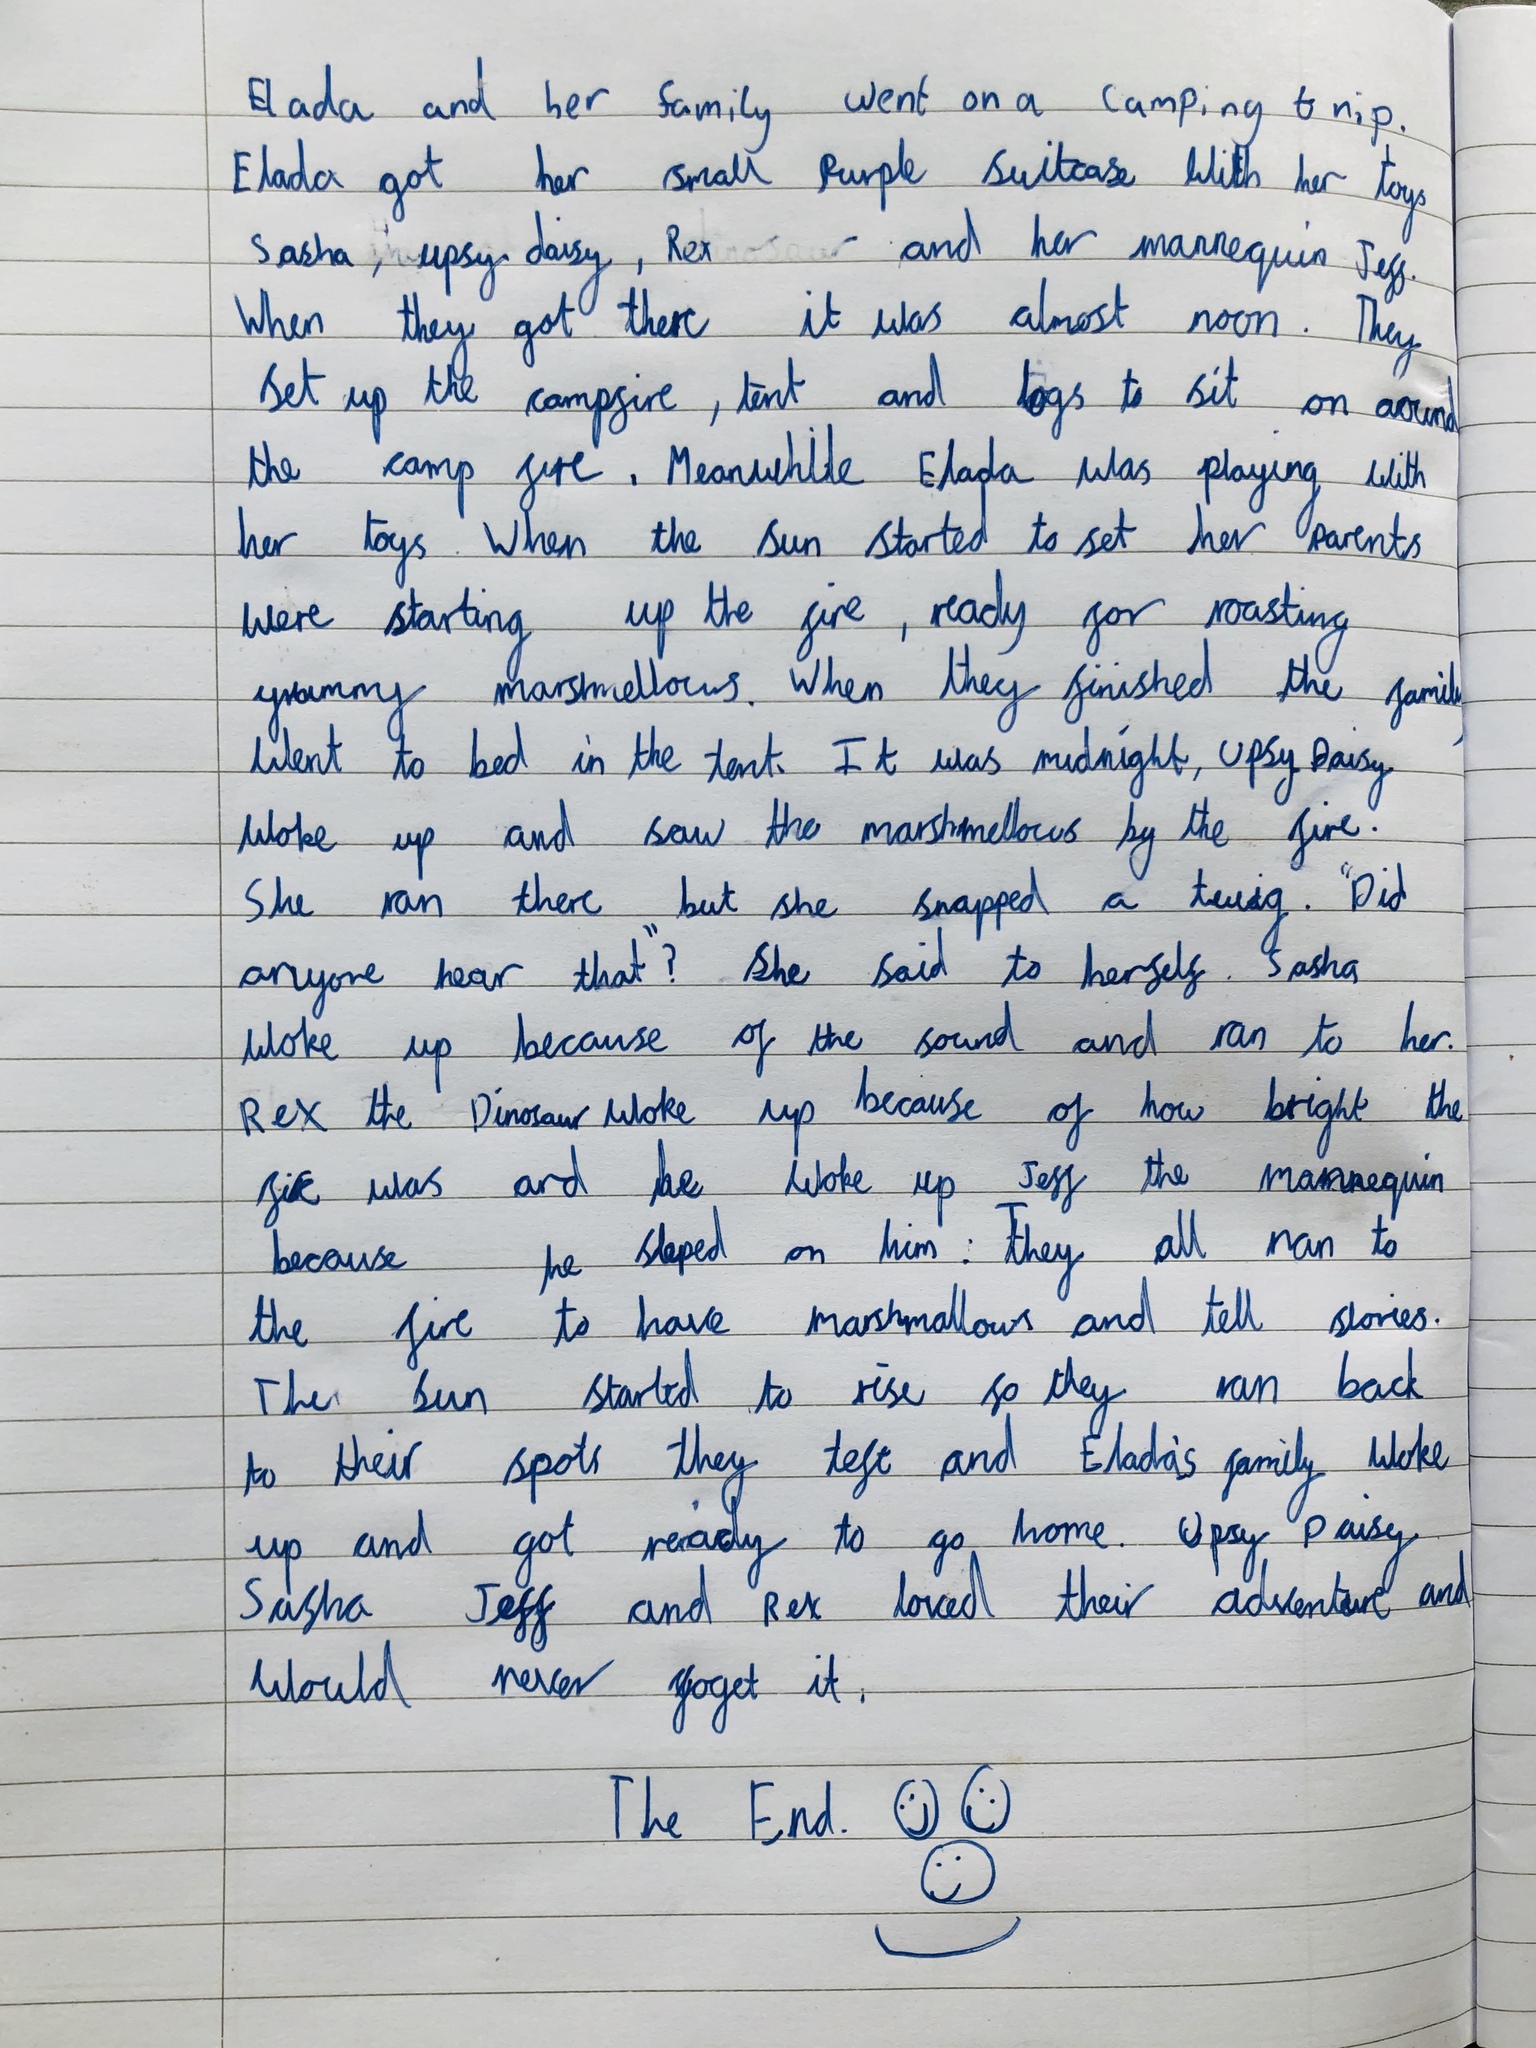 Elada and her family went on a camping trip.
Elada got her small Purple suitcase with her toys
Sasha, upsy daisy, Rex and her mannequin Jeff.
When they got there it was almost noon. They
set up the campfire, tent and logs to sit on around
the camp fire. Meanwhile Elada was playing with
her toys. When the sun started to set her parents
were starting up the fire, ready for roasting
yummy marshmellows. When they finished the family
went to bed in the tent. It was midnight, Upsy Daisy
woke up and saw the marshmellows by the fire.
She ran there but she snapped a twig. "Did
anyone hear that"? She said to herself. Sasha
woke up because of the sound and ran to her.
Rex the Dinosaur woke up because of how bright the
fire was and he woke up Jeff the mannequin
because he sleped on him. They all ran to
the fire to have marshmallows and tell stories.
The sun started to rise so they ran back
to their spots they left and Elada's family woke
up and got ready to go home. Upsy Daisy
Sasha Jeff and Rex loved their adventure and
would never foget it.
The End.